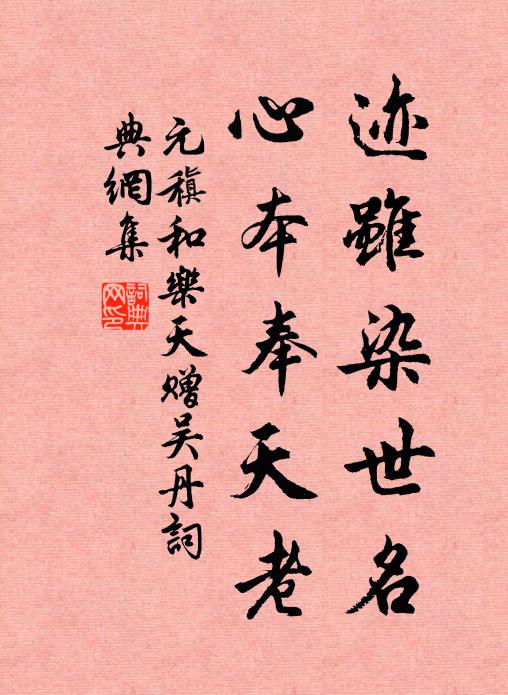 迹雖染世名
心本奉天老
元稹和樂天贈吴丹詞
典網集
詞典
网印